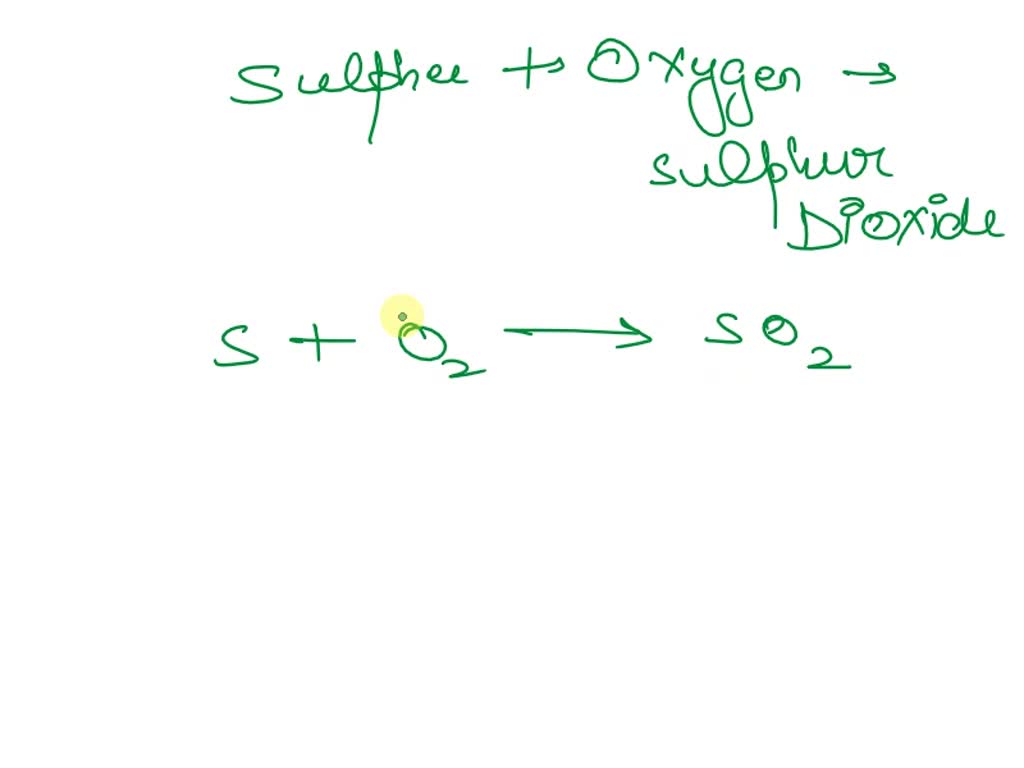 Sulphur + Oxygen →
sulphur
Dioxide
S + O₂ → SO₂